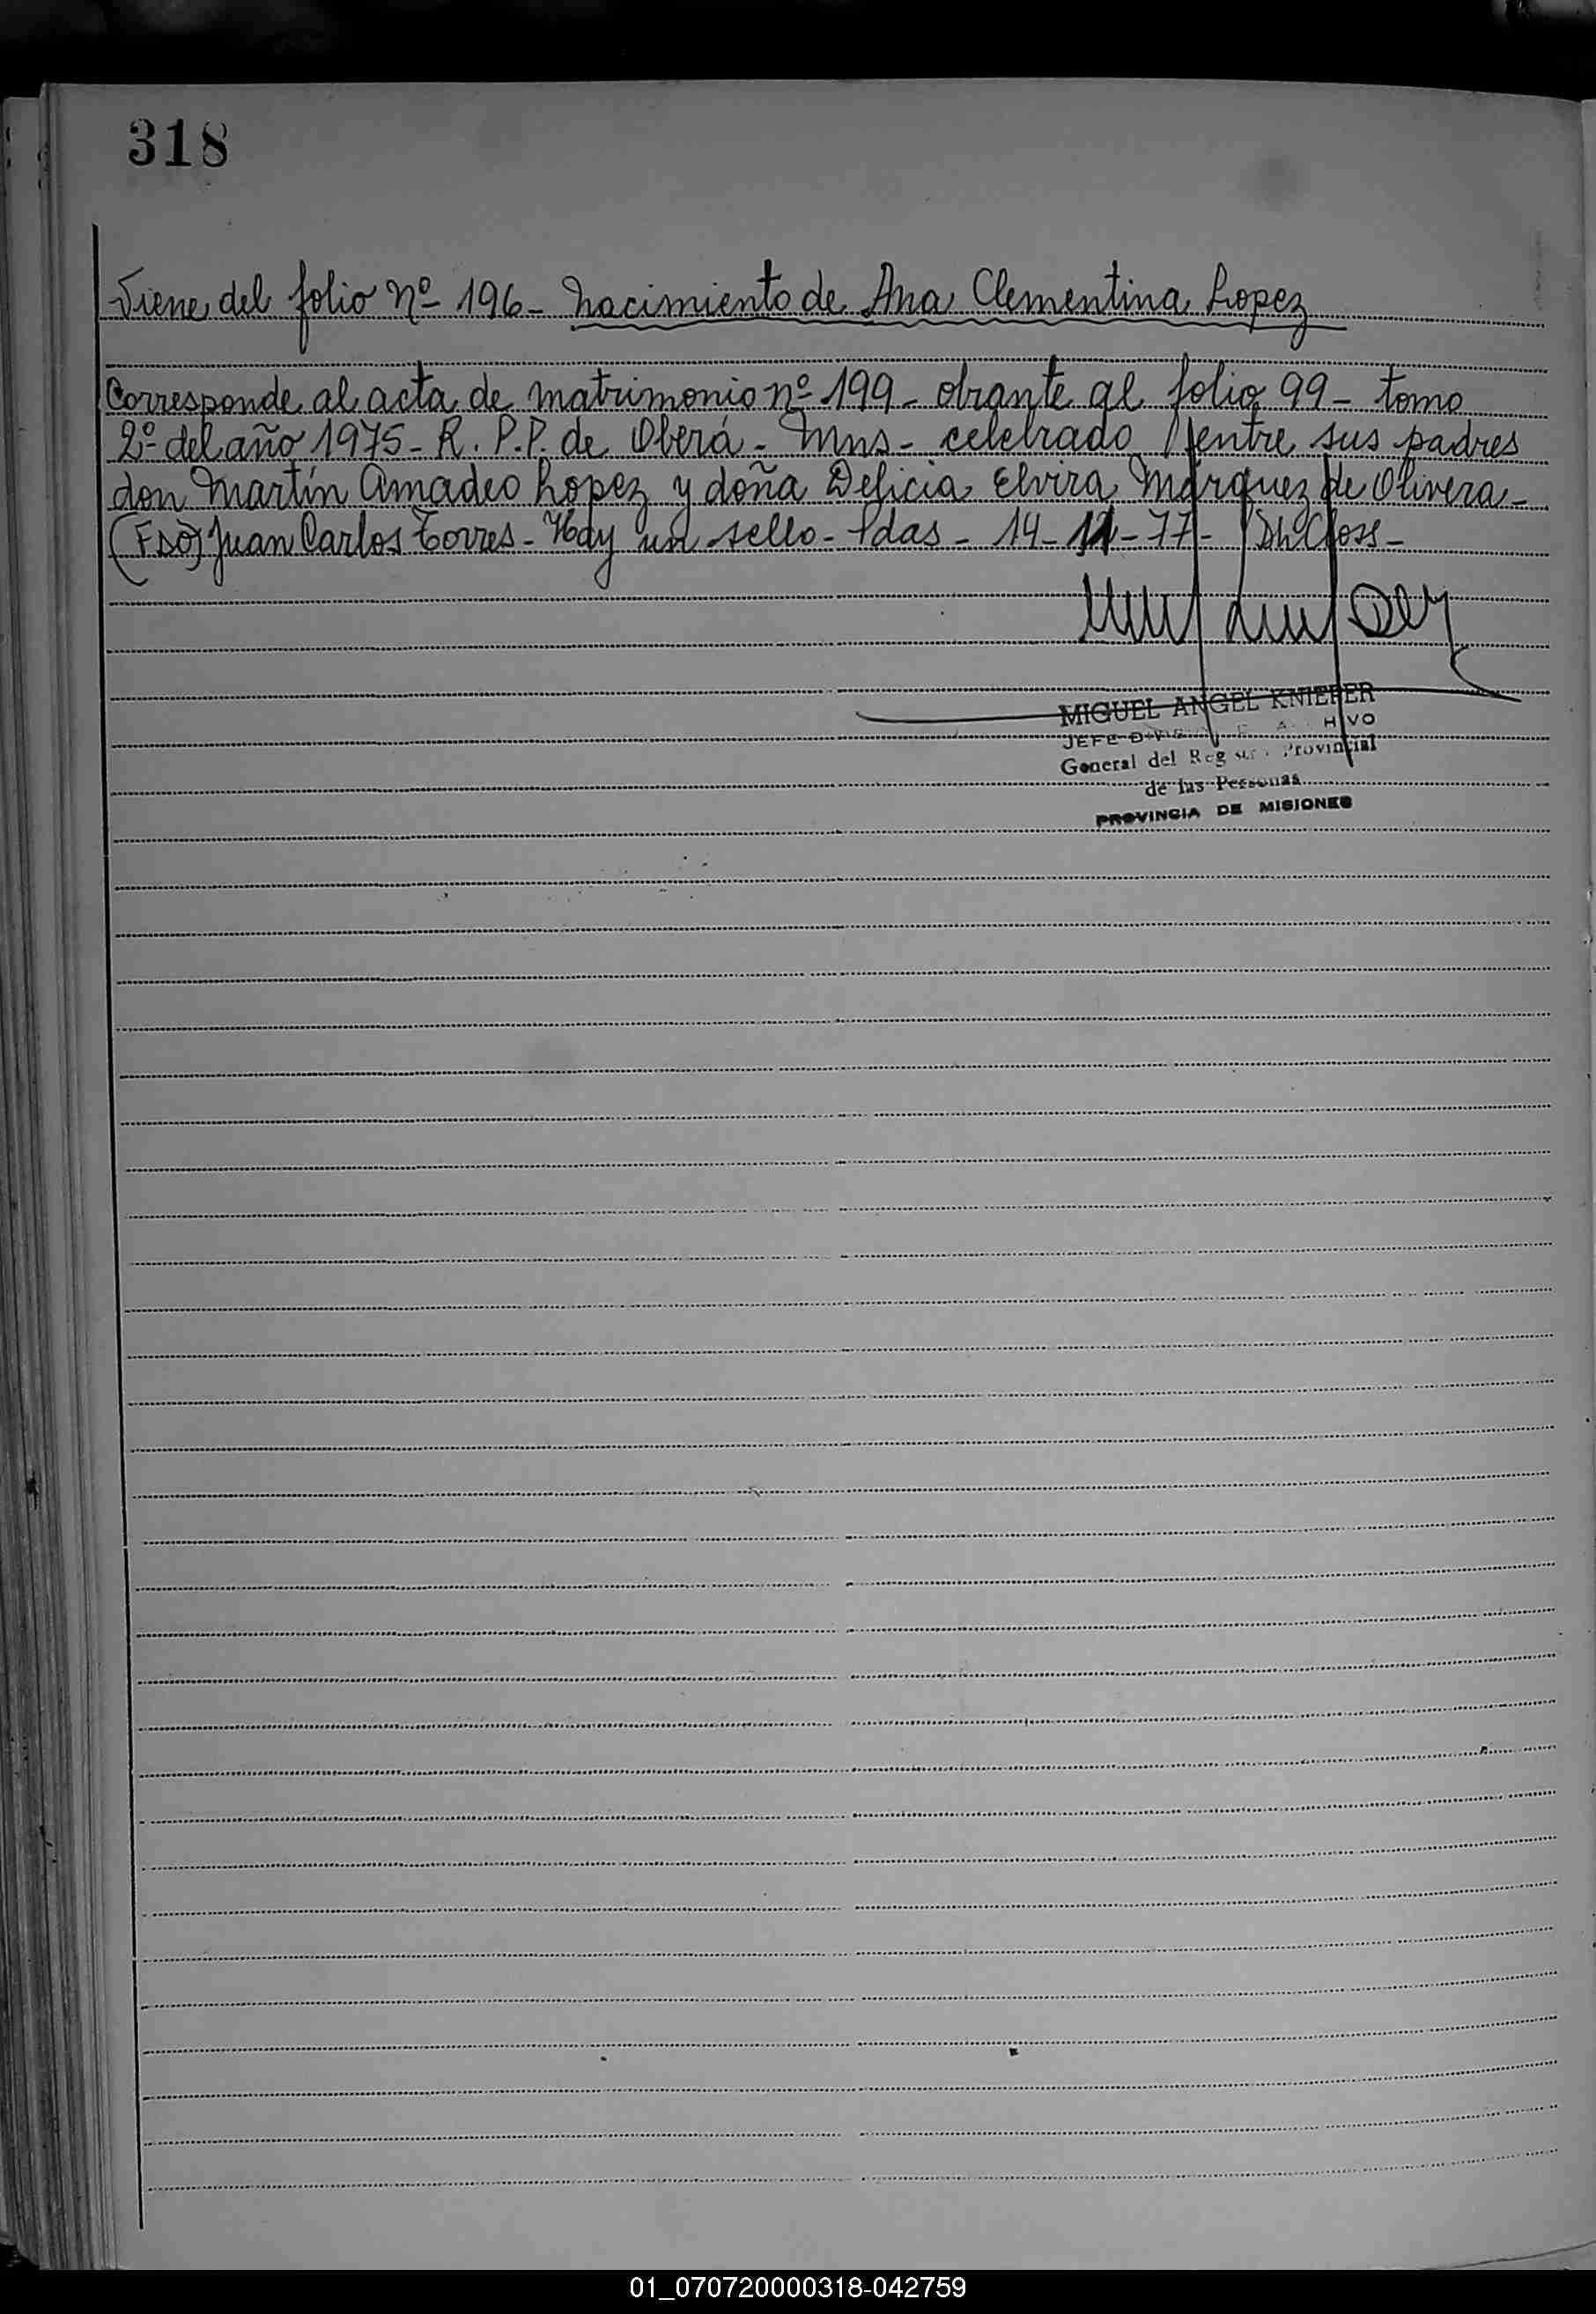 318
Viene del folio Nº 196 - Nacimiento de Ana Clementina Lopez
Corresponde al acta de matrimonio nº 199 - obrante al folio 99 - tomo
2º del año 1975 - R. P. P. de Oberá - Mns - celebrado entre sus padres
don Martín Amadeo Lopez y doña Delicia Elvira Márquez de Olivera -
(FDO) Juan Carlos Torres - Hay un sello - Pdas - 14 - 11 - 77 -
MIGUEL ANGEL KNIEPER
JEFE
General del Provincial
de las Personas
PROVINCIA DE MISIONES
01_070720000318-042759